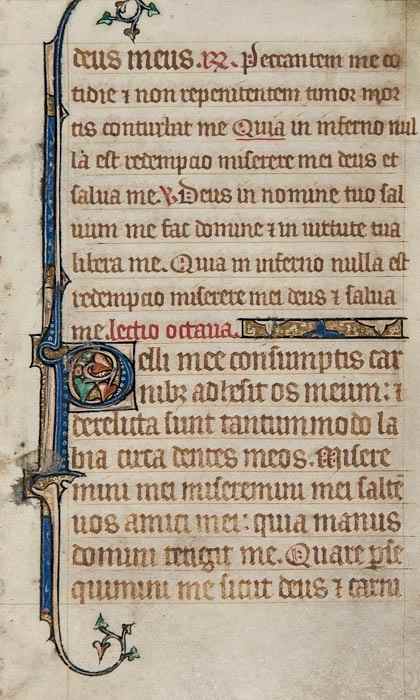 deus meus. R. Peccantem me co
tidie ⁊ non repenitentem timor mor
tis conturbat me Quia in inferno nul
la est redempcio miserere mei deus et
salua me. V. Deus in nomine tuo sal
uum me fac domine ⁊ in uirtute tua
libera me. Quia in inferno nulla est
redempcio miserere mei deus ⁊ salua
me. lectio octaua.
Pelli mee consumptis car
nibꝫ adhesit os meum: ⁊
derelicta sunt tantummodo la
bia circa dentes meos. Misere
mini mei miseremini mei saltē
uos amici mei: quia manus
domini tetigit me. Quare ꝑse
quimini me sicut deus ⁊ carni